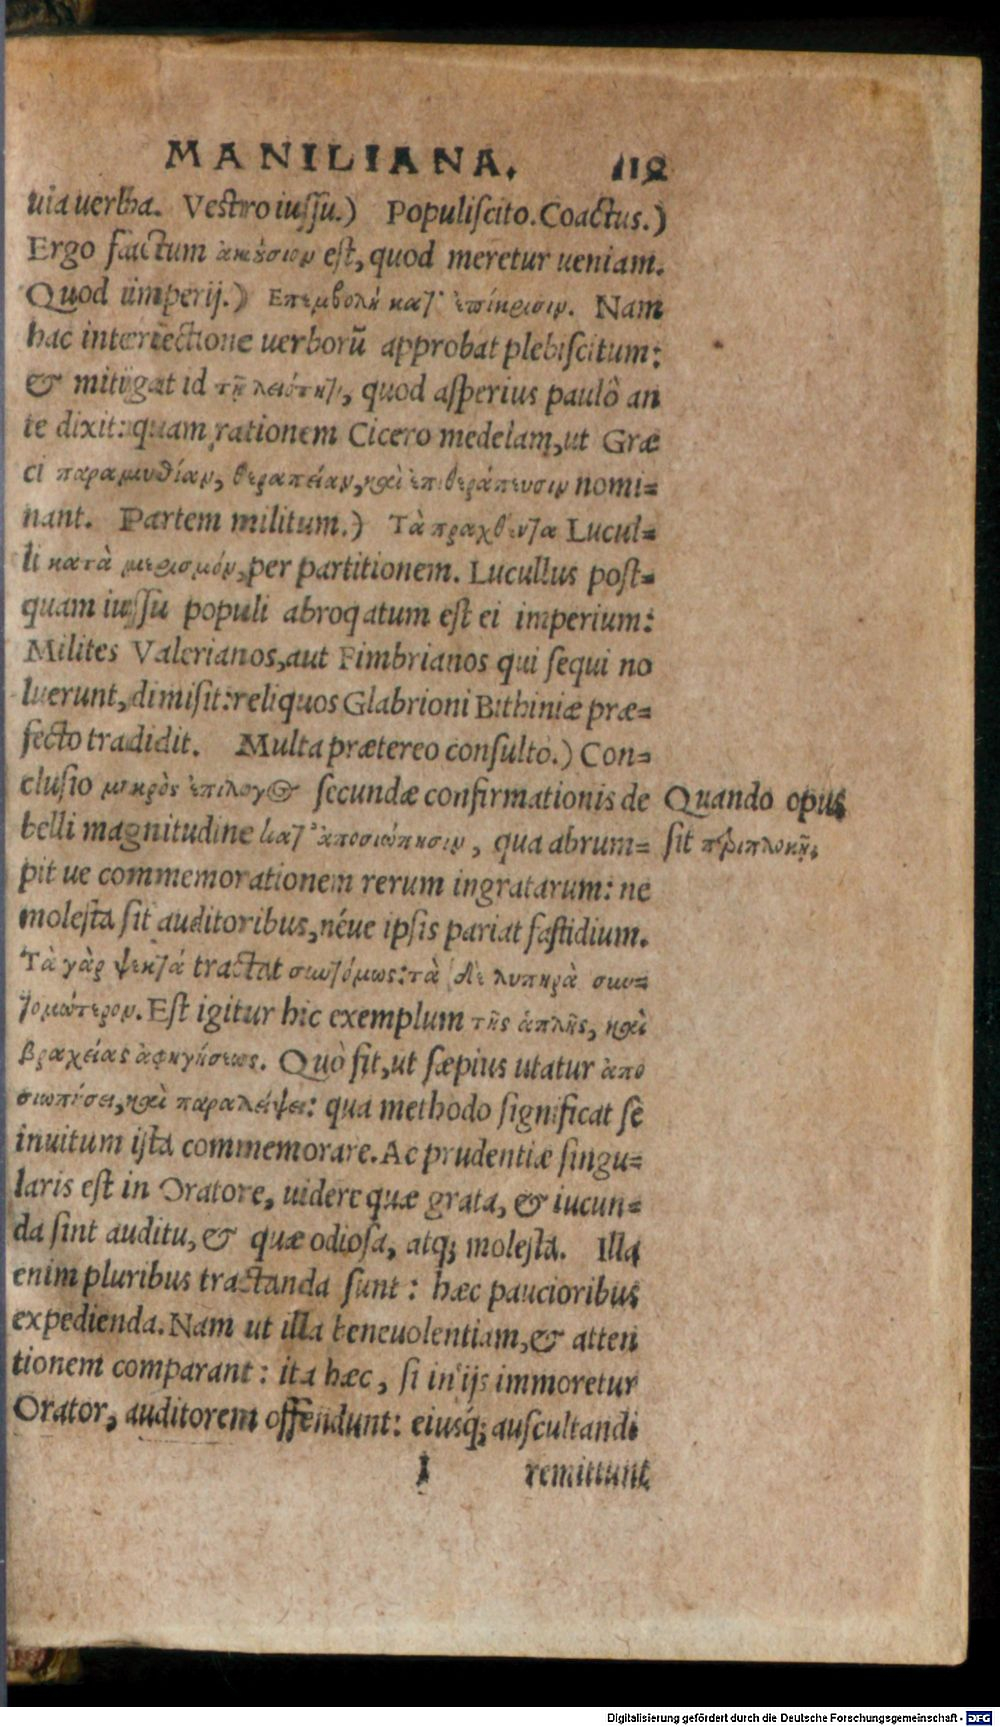 MANILIANA.
uia uerba. Vestro iussu.) Populiscito. Coactus.)
Ergo factum ἀκέσιον est, quod meretur ueniam.
Quod imperij.) Επεμβολὴ κατ' ἐπίκρισιν. Nam
hac interiectione uerborū approbat plebiscitum:
& mitigat id τῇ λειότητι, quod asperius paulò an
te dixit: quam rationem Cicero medelam, ut Græ
ci παραμυθίαν, θεραπείαν, καὶ ἐπιθεράπευσιν nomi=
nant. Partem militum.) Τὰ πραχθέντα Lucul=
li κατὰ μερισμόν, per partitionem. Lucullus post=
quam iussu populi abrogatum est ei imperium:
Milites Valerianos, aut Fimbrianos qui sequi no
luerunt, dimisit: reliquos Glabrioni Bithiniæ præ=
fecto tradidit. Multa prætereo consultò.) Con=
clusio μικρὸς ἐπίλογος secundæ confirmationis de
belli magnitudine κατ' ἀποσιώπησιν, qua abrum=
pit ue commemorationem rerum ingratarum: ne
molesta sit auditoribus, néue ipsis pariat fastidium.
Τὰ γὰρ ψεκτά tractat συντόμως: τὰ δὲ λυπηρὰ συν=
τομώτερον. Est igitur hic exemplum τῆς ἁπλῆς, καὶ
βραχείας ἀφηγήσεως. Quò fit, ut sæpius utatur ἀπο
σιωπήσει, καὶ παραλείψει: qua methodo significat se
inuitum ista commemorare. Ac prudentiæ singu=
laris est in Oratore, uidere quæ grata, & iucun=
da sint auditu, & quæ odiosa, atq; molesta. Illa
enim pluribus tractanda sunt: hæc paucioribus
expedienda. Nam ut illa beneuolentiam, & atten
tionem comparant: ita hæc, si in ijs immoretur
Orator, auditorem offendunt: eiusq́; auscultandi
I remittunt
Quando opus
sit περιπλοκῆς.
Digitalisierung gefördert durch die Deutsche Forschungsgemeinschaft - DFG